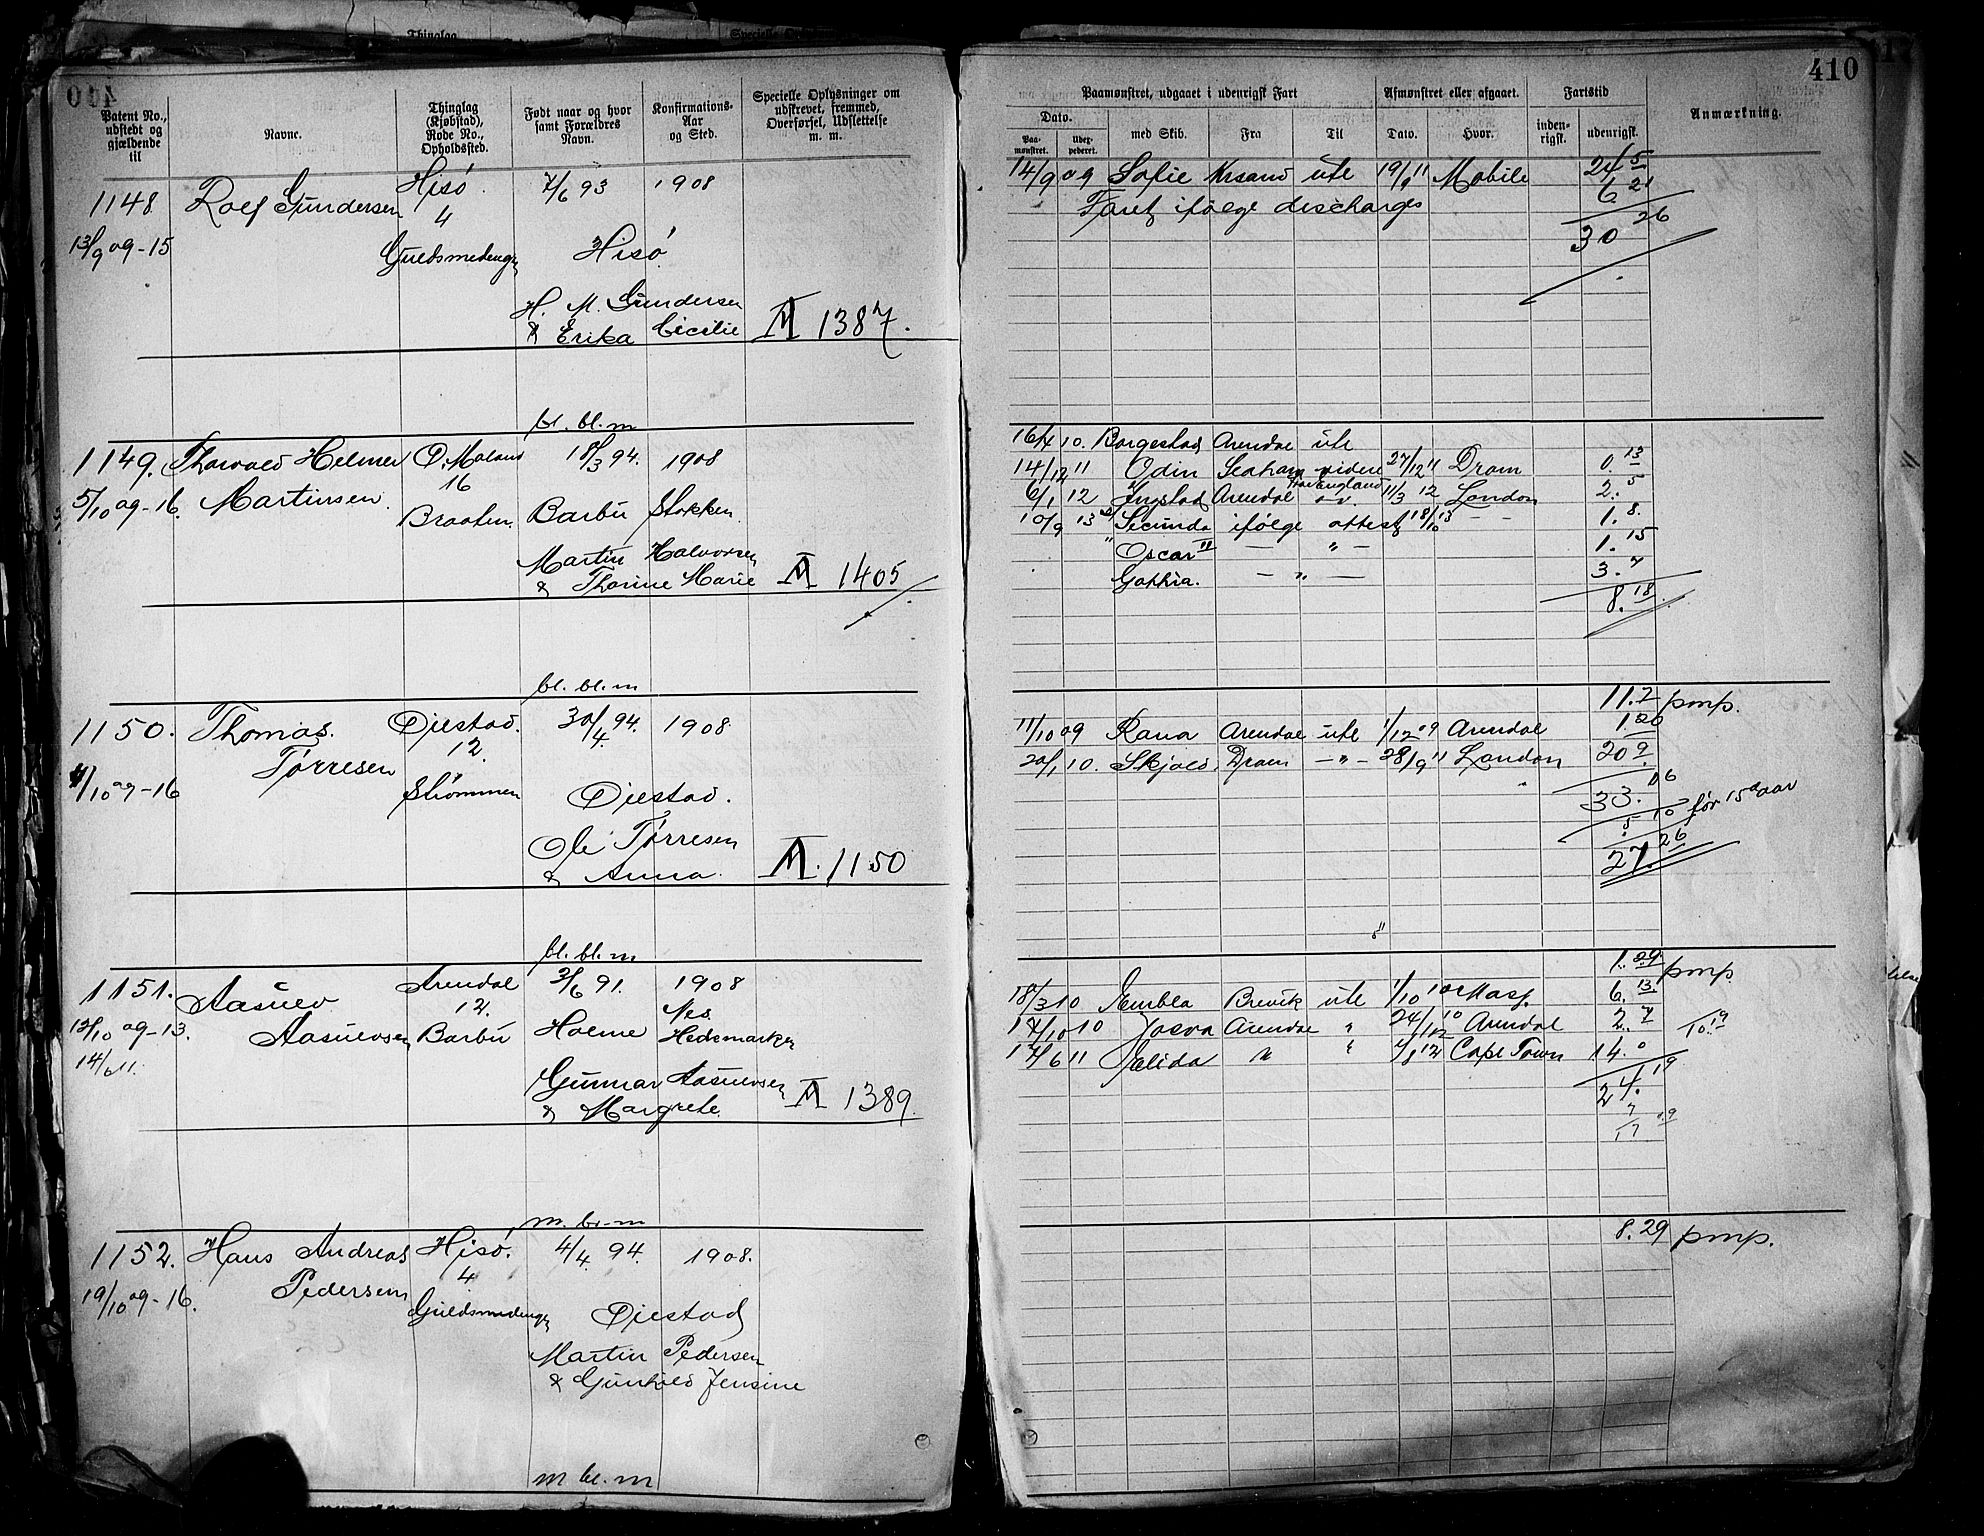 410
Patent No., udstedt og gjældende til
Navne.
Thinglag (Kjøbstad), Rode No., Opholdssted.
Født naar og hvor samt Forældres Navn.
Konfirmations-Aar og Sted.
Specielle Oplysninger om udskrevet, fremmed, Overførsel, Udslettelse m. m.
Paamønstret, udgaaet i udenrigsk Fart
Afmønstret eller afgaaet.
Fartstid
Anmærkning.
Dato.
med Skib.
Fra
Til
Dato.
Hvor.
inden-rigsk.
udenrigsk.
Paa-mønstret.
1148 Rolf Gundersen Hisø 7/6 93 1908
4
13/9 09-15 Guldsmedengen Hisø
H. M. Gundersen
& Erika Cecilie M 1387.
bl. bl. m
14/9 09 Sofie Krsand ute 19/9 11 Mobile 24 5
Faret ifølge discharges 6 21
30 26
1149. Thorvald Helmer Ø. Moland 18/3 94. 1908
16
5/10 09-16. Martinsen Braaten Barbu Stokken
Martin Halvorsen
& Thorine Marie M 1405
bl. bl. m
16/4 10. Borgestad Arendal ute
14/12 11 Odin Seaham videre 27/12 11 Dram 0. 13
6/1 12 Ingstad Arendal 11/3 12 London 2. 5
10/9 13 Secunda ifølge attest 18/10 13 — — 1. 8.
" Oscar II — " — 1. 15
Gophia. — " — 3. 7
8. 18
1150. Thomas Øiestad. 30/4. 94. 1908
Tørresen 12.
11/10 09-16 Strømmen Øiestad.
Ole Tørresen
& Anna. M. 1150
bl. bl. m
11.2 pmp.
11/10 09 Rana Arendal ute 1/12 09 Arendal 1 20
20/1 10. Skjold Dram — " — 28/9 11 London 20 9
33. 16
5 10 før 15 aar
27. 26
1151. Aasulv Arendal 3/6 91. 1908
12. Nes
12/10 09-13. Aasulvsen Barbu Holme Hedemarken
14/6 11.
Gunnar Aasulvsen
& Margrete M 1389
m. bl. m
1. 29 pmp
18/3 10 Embla Brevik ute 1/10 10 6. 13
17/10 10 Josva Arendal " 24/12 10 Arendal 2. 7 10. 19
17/6 11 Sælida " " 7/8 12 Cape Town 14. 0
24. 19
7
17 19
1152. Hans Andreas Hisø. 4/4. 94. 1908.
Pedersen 4
19/10 09-16. Guldsmedengen Øiestad
Martin Pedersen
& Gunhild Jensine
m bl. m
8.29 pmp.